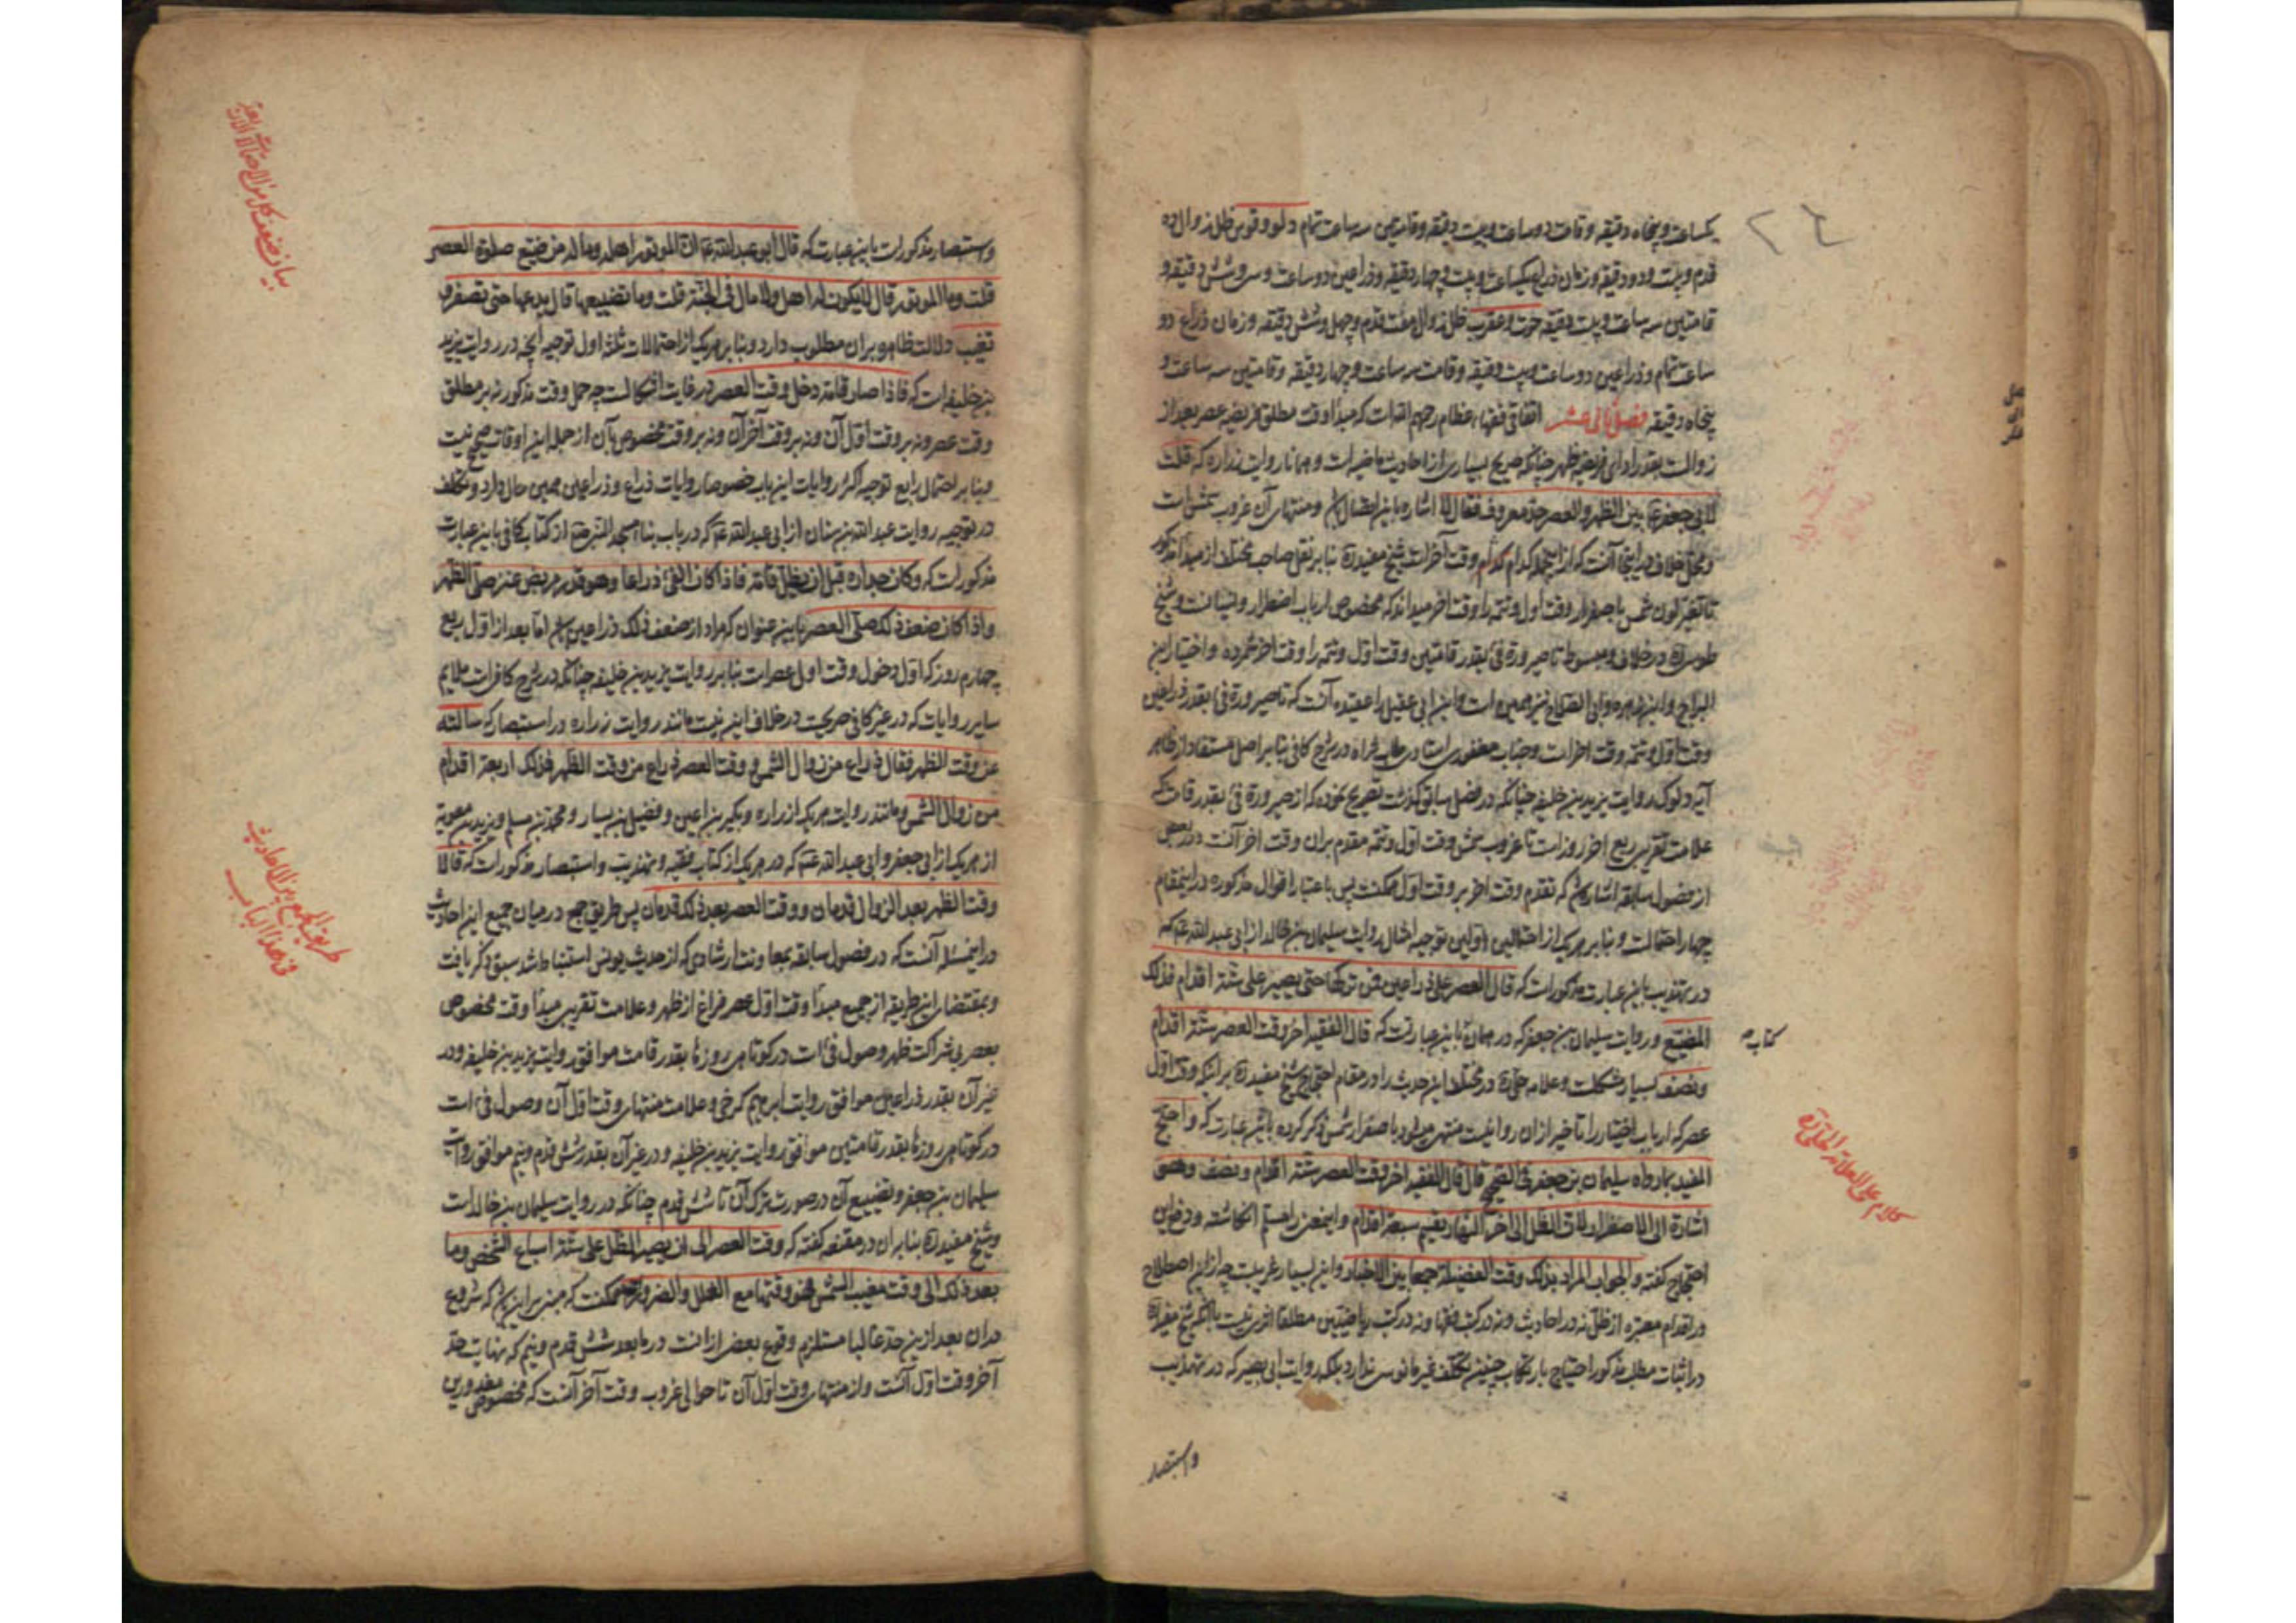 یکساعت و پنجاه دقیقه و قامت دو ساعت و بیست دقیقه و قامتین سه ساعت تمام دلو و قوس ظل زوال ده
قدم و بیست و دو دقیقه و زمان ذراع یکساعت و بیست و چهار دقیقه و ذراعین دو ساعت و سی و شش دقیقه و
قامتین سه ساعت و بیست دقیقه حوت و عقرب ظل زوال هفت قدم و چهل و شش دقیقه و زمان ذراع دو
ساعت تمام و ذراعین دو ساعت و بیست دقیقه و قامت سه ساعت و چهار دقیقه و قامتین سه ساعت و
پنجاه دقیقه فصل ثانی عشر اتفاقی فقهاء عظام رحمهم الله است که مبدأ وقت مطلق فریضه عصر بعد از
زوالست بقدر ادای فریضه ظهر چنانکه صریح بسیاری از احادیث ماضیه است و همانا روایت زراره که قلت
لابی جعفر ع بین الظهر والعصر حد معروف فقال لا اشاره باین اتصال و منتهای آن غروب شمس است
و محل خلاف در اینجا آنست که از اینجمله کدام اول و کدام وقت آخر است شیخ مفید ره بنابر نقل صاحب مختلف از مبدأ مذکور
تا تغیر لون شمس باصفرار وقت اول و تتمه را وقت آخر میداند که مخصوص ارباب اضطرار و نسیانست و شیخ
طوسی ره در خلاف و مبسوط تا صیرورة فیء بقدر قامتین وقت اول و تتمه را وقت آخر شمرده و اختیار ابن
البراج و ابن زهره و ابی الصلاح نیز همین است و ابن ابی عقیل را عقیده آنست که تا صیرورة فیء بقدر ذراعین
وقت اول و تتمه وقت آخر است و جناب مغفوری استادی طاب ثراه در شرح کافی بنابر اصل مستفاد از ظاهر
آیه دلوک و روایت یزید بن خلیفه چنانکه در فصل سابق گذشت تصریح نموده که از صیرورة فیء بقدر قامت که
علامت تقریبی ربع آخر روز است تا غروب شمس وقت اول و تتمه مقدم بران وقت آخر آنست و در بعضی
از فصول سابقه اشاره شد که تقدم وقت آخر بر وقت اول ممکنست پس باعتبار اقوال مذکوره در اینمقام
چهار احتمالست و بنابر هر یک از احتمالین اولین توجیه امثال روایت سلیمان بن خالد از ابی عبدالله ع که
در تهذیب باین عبارت مذکور است که قال العصر علی ذراعین فمن ترکها حتی یصیر علی ستة اقدام فذلک
المضیع و روایت سلیمان بن جعفر که در همان کتاب باین عبارتست که قال الفقیه آخر وقت العصر ستة اقدام
و نصف بسیار مشکلست و علامه حلی ره در مختلف این حدیث را در مقام احتجاج شیخ مفید ره بر اینکه وقت اول
عصر که ارباب اختیار را تاخیر ازان روا نیست منتهی میشود باصفرار شمس ذکر کرده باین عبارت که واحتج
المفید بما رواه سلیمان بن جعفر فی الصحیح قال قال الفقیه آخر وقت العصر ستة اقدام و نصف وهو
اشارة الی الاصفرار لان الظل الی آخر النهار یقسم سبعة اقدام و اینمعنی را مسلم انگاشته و در جواب این
احتجاج گفته والجواب المراد بذلک وقت الفضیلة جمعا بین الاخبار و این بسیار غریبست چه از این اصطلاح
در اقدام معتبره از ظل نه در احادیث و نه در کتب فقها و نه در کتب ریاضیین مطلقا اثری نیست با آنکه شیخ مفید ره
در اثبات مطلب مذکور احتیاج بارتکاب چنین تکلف غیر مانوس ندارد بلکه روایت ابی بصیر که در تهذیب
واستبصار
کتاب
کلام علی العلامة الحلی ره
واستبصار مذکور است باین عبارت که قال ابو عبدالله ع ان الموتور اهله وماله من ضیع صلوة العصر
قلت وما الموتور قال لا یکون له اهل ولا مال فی الجنة قلت وما تضییعها قال یدعها حتی تصفر و
تغیب دلالت ظاهر بران مطلوب دارد و بنابر هر یک از احتمالات ثلثه اول توجیه آنچه در روایت یزید
بن خلیفه است که فاذا صار قامة دخل وقت العصر در غایت اشکالست چه حمل وقت مذکور نه بر مطلق
وقت عصر و نه بر وقت اول آن و نه بر وقت آخر آن و نه بر وقت مخصوص بآن از جمله این اوقات صحیح نیست
و بنابر احتمال رابع توجیه اکثر روایات این باب خصوصا روایات ذراع و ذراعین همین حال دارد و تکلف
در توجیه روایت عبدالله بن سنان از ابی عبدالله ع که در باب بناء مسجد النبی ص از کتاب کافی باین عبارت
مذکور است که وکان جداره قبل ان یظلل قامة فاذا کان الفیء ذراعا وهو قدر مربض عنز صلی الظهر
واذا کان ضعف ذلک صلی العصر باین عنوان که مراد از ضعف ذلک ذراعین اما بعد از اول ربع
چهارم روز که اول دخول وقت اول عصر است بنابر روایت یزید بن خلیفه چنانکه در شرح کافی است ملایم
سایر روایات که در غیر کافی صریحست در خلاف این نیست مانند روایت زراره در استبصار که سالته
عن وقت الظهر فقال ذراع من زوال الشمس و وقت العصر ذراع من وقت الظهر فذلک اربعة اقدام
من زوال الشمس و مانند روایت هر یک از زراره و بکیر بن اعین و فضیل بن یسار و محمد بن مسلم و برید بن معویة
از هر یک از ابی جعفر و ابی عبدالله ع که در هر یک از کتاب فقیه و تهذیب و استبصار مذکور است که قالا
وقت الظهر بعد الزوال قدمان و وقت العصر بعد ذلک قدمان پس طریق جمع در میان جمیع این احادیث
در اینمسئله آنست که در فصول سابقه بمعاونت ارشادی که از حدیث یونس استنباط شد سبق ذکر یافت
و بمقتضای این طریقه از جمع مبدأ وقت اول عصر فراغ از ظهر و علامت تقریبی مبدأ وقت مخصوص
بعصر بی شراکت ظهر وصول فیء است در کوتاهی روزها بقدر قامت موافق روایت یزید بن خلیفه و در
غیر آن بقدر ذراعین موافق روایت ابرهیم کرخی و علامت منتهای وقت اول آن وصول فیء است
در کوتاهی روزها بقدر قامتین موافق روایت یزید بن خلیفه و در غیر آن بقدر شش قدم و نیم موافق روایت
سلیمان بن جعفر و تضییع آن در صورت ترک آن تا شش قدم چنانکه در روایت سلیمان بن خالد است
و شیخ مفید ره بنابر ان در مقنعه گفته که وقت العصر الی ان یصیر الظل علی ستة اسباع الشخص وما
بعد ذلک الی وقت مغیب الشمس فهو وقتها مع العلل والضرورة ممکنست که مبنی بر این باشد که شروع
دران بعد از ین حد غالبا مستلزم وقوع بعض ازانست در مابعد شش قدم و نیم که نهایت حد
آخر وقت اول آنست و از منتهای وقت اول آن تا حوالی غروب وقت آخر آنست که مخصوص معذورین
بیان ضعف کل من الاحتمالات الاربعة
طریق الجمع بین الاحادیث
فی هذا الباب